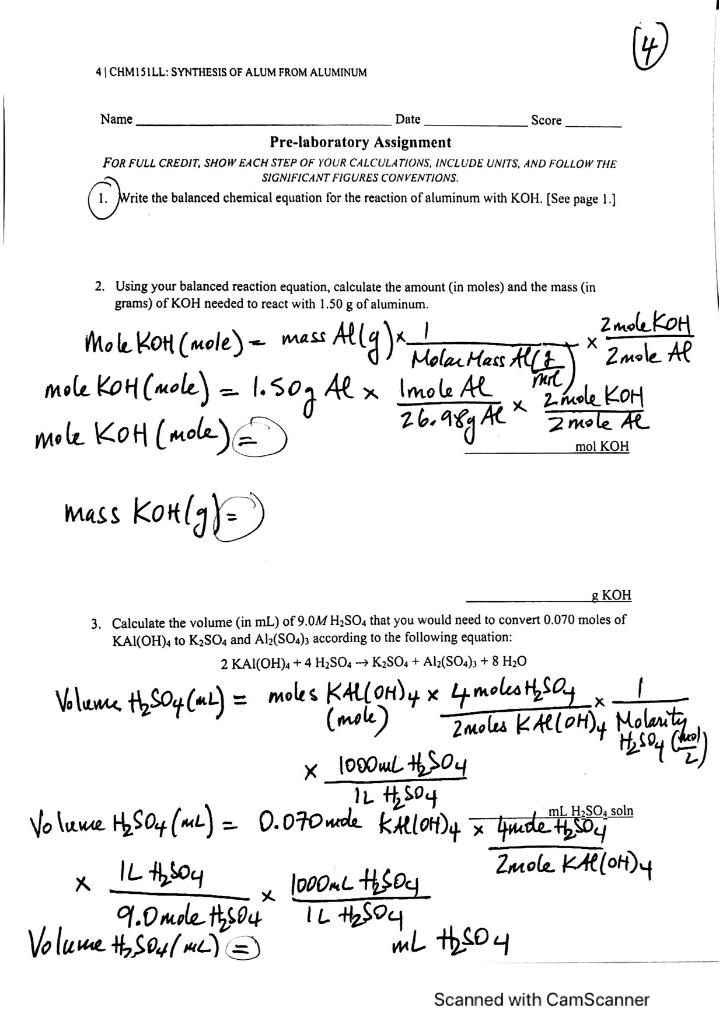 (4)
4 | CHM151LL: SYNTHESIS OF ALUM FROM ALUMINUM
Name ____ Date ____ Score ____
Pre-laboratory Assignment
FOR FULL CREDIT, SHOW EACH STEP OF YOUR CALCULATIONS, INCLUDE UNITS, AND FOLLOW THE
SIGNIFICANT FIGURES CONVENTIONS.
1. Write the balanced chemical equation for the reaction of aluminum with KOH. [See page 1.]
2. Using your balanced reaction equation, calculate the amount (in moles) and the mass (in
grams) of KOH needed to react with 1.50 g of aluminum.
Mole KOH (mole) = mass Al(g) × 1 / Molar Mass Al (g/mol) × 2 mole KOH / 2 mole Al
mole KOH (mole) = 1.50g Al × 1 mole Al / 26.98g Al × 2 mole KOH / 2 mole Al
mole KOH (mole) =
mol KOH
mass KOH(g) =
g KOH
3. Calculate the volume (in mL) of 9.0M H₂SO₄ that you would need to convert 0.070 moles of
KAl(OH)₄ to K₂SO₄ and Al₂(SO₄)₃ according to the following equation:
2 KAl(OH)₄ + 4 H₂SO₄ → K₂SO₄ + Al₂(SO₄)₃ + 8 H₂O
Volume H₂SO₄ (mL) = moles KAl(OH)₄ (mole) × 4 moles H₂SO₄ / 2 moles KAl(OH)₄ × 1 / Molarity H₂SO₄ (mol/L)
× 1000 mL H₂SO₄ / 1L H₂SO₄
mL H₂SO₄ soln
Volume H₂SO₄ (mL) = 0.070 mole KAl(OH)₄ × 4 mole H₂SO₄ / 2 mole KAl(OH)₄
× 1L H₂SO₄ / 9.0 mole H₂SO₄ × 1000 mL H₂SO₄ / 1L H₂SO₄
Volume H₂SO₄ (mL) = mL H₂SO₄
Scanned with CamScanner